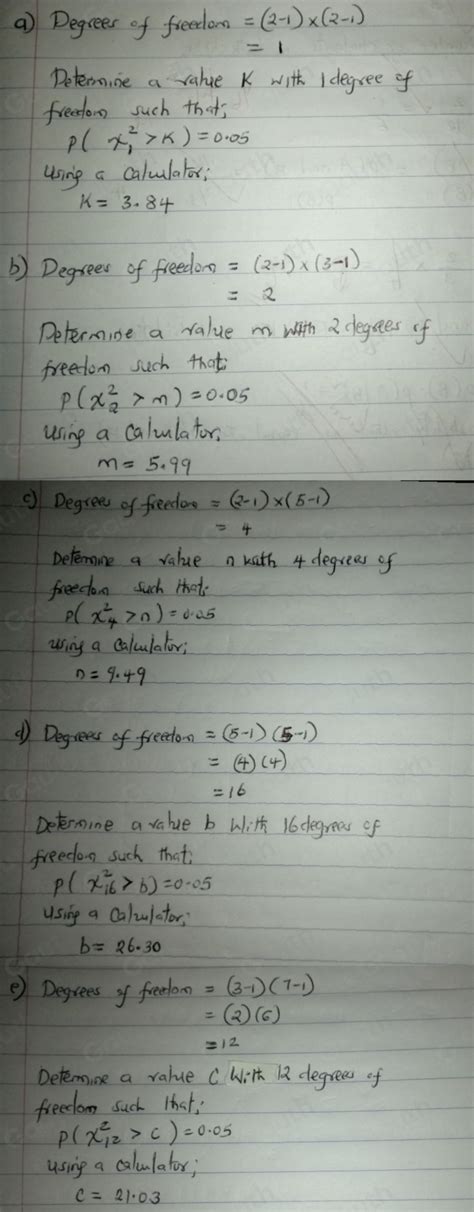 a) Degrees of freedom = (2-1) x (2-1)
= 1
Determine a value K with 1 degree of
freedom such that;
P( x₁² > K) = 0.05
Using a calculator;
K = 3.84
b) Degrees of freedom = (2-1) x (3-1)
= 2
Determine a value m with 2 degrees of
freedom such that;
P(x₂² > m) = 0.05
Using a calculator;
m = 5.99
c) Degrees of freedom = (2-1) x (5-1)
= 4
Determine a value n with 4 degrees of
freedom such that;
P(x₄² > n) = 0.05
using a calculator;
n = 9.49
d) Degrees of freedom = (5-1) (5-1)
= (4) (4)
= 16
Determine a value b with 16 degrees of
freedom such that;
P( x₁₆² > b) = 0.05
Using a calculator;
b = 26.30
e) Degrees of freedom = (3-1) (7-1)
= (2) (6)
= 12
Determine a value C with 12 degrees of
freedom such that;
P(x₁₂² > c) = 0.05
using a calculator;
c = 21.03